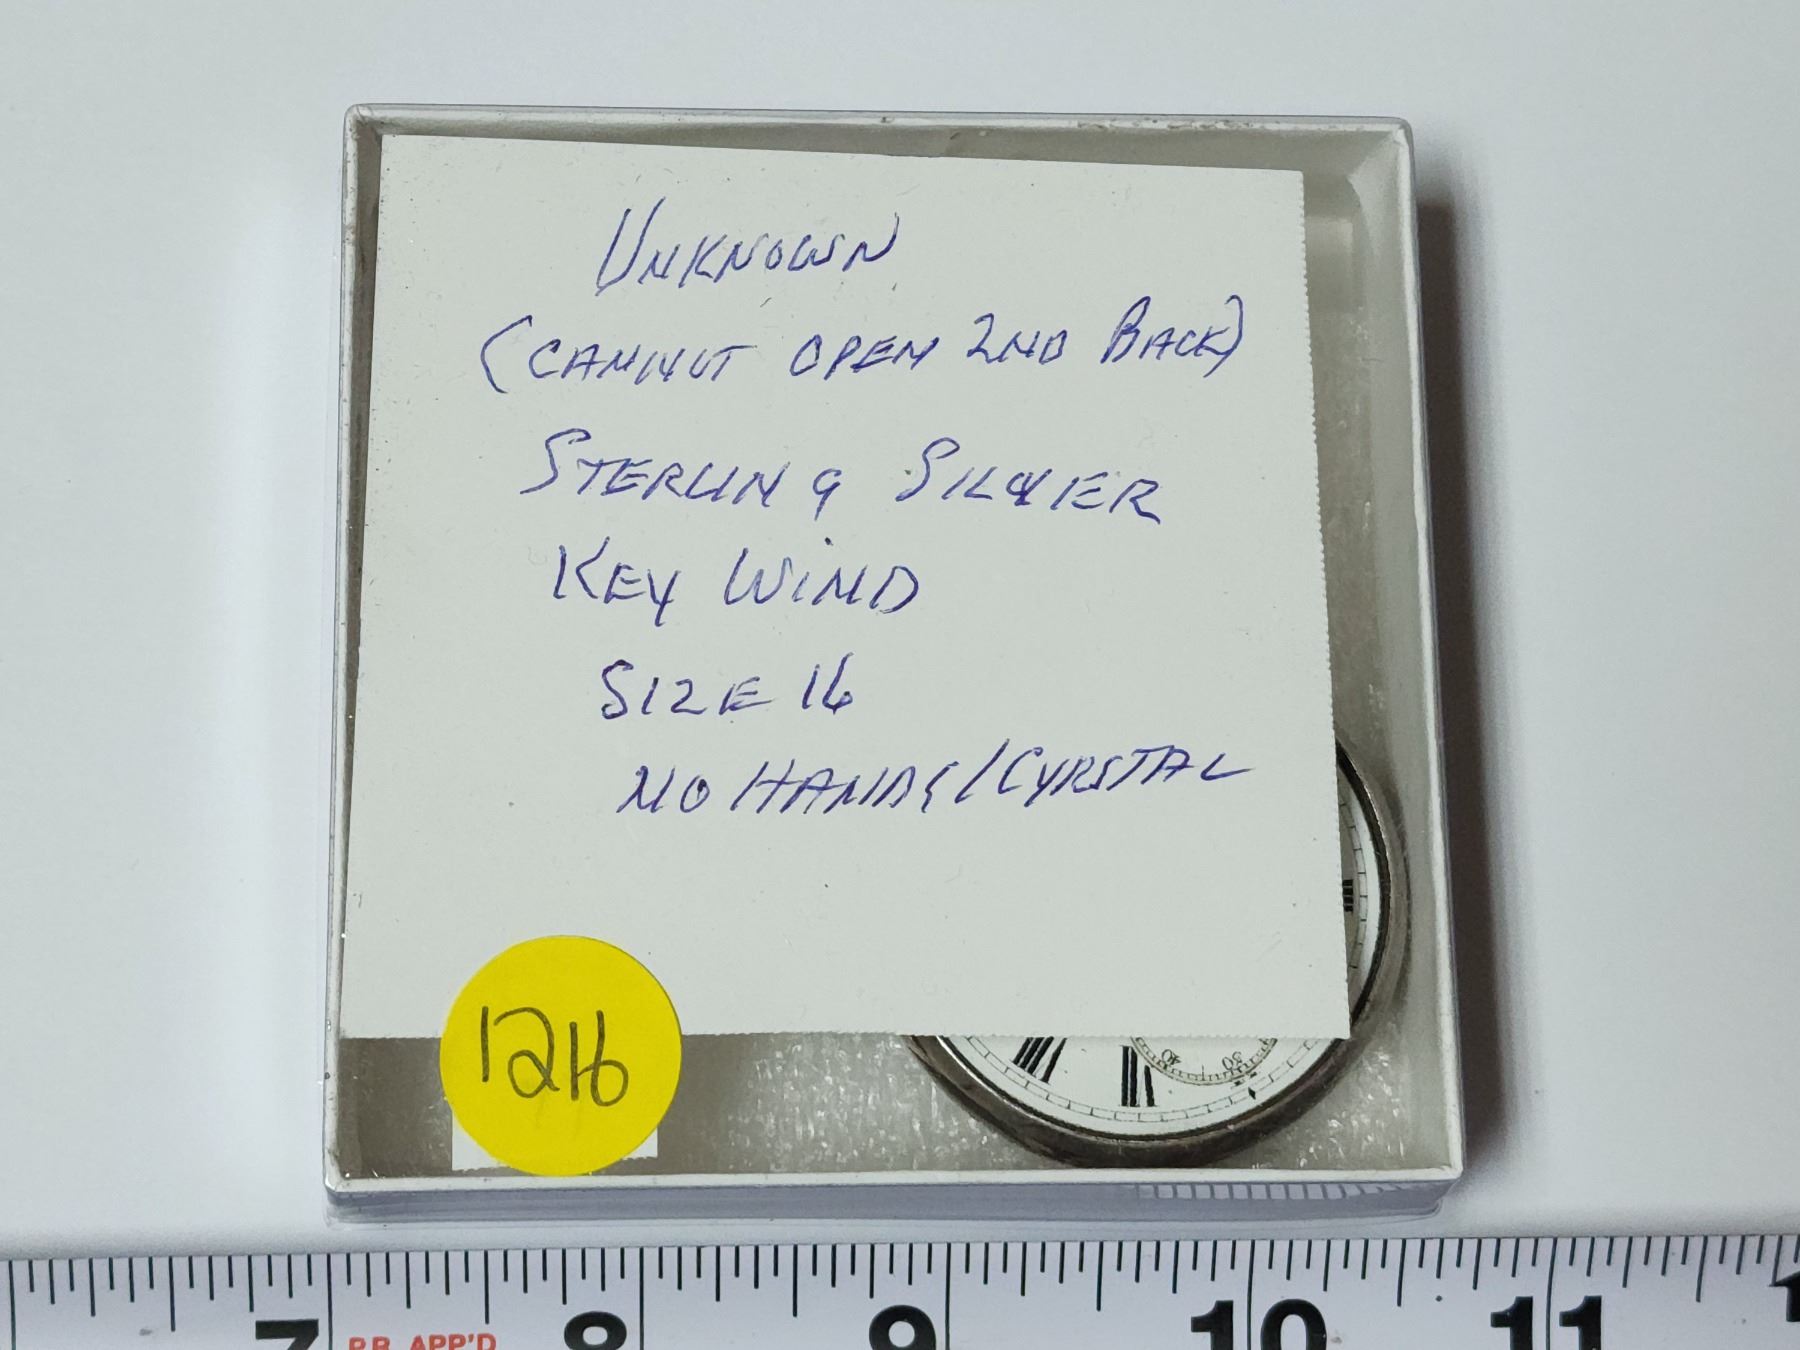 UNKNOWN
(CANNOT OPEN 2ND BACK)
STERLING SILVER
KEY WIND
SIZE 16
NO HANDS/CYRSTAL
1216
40 30
7 8 9 10 11
P.R. APP'D